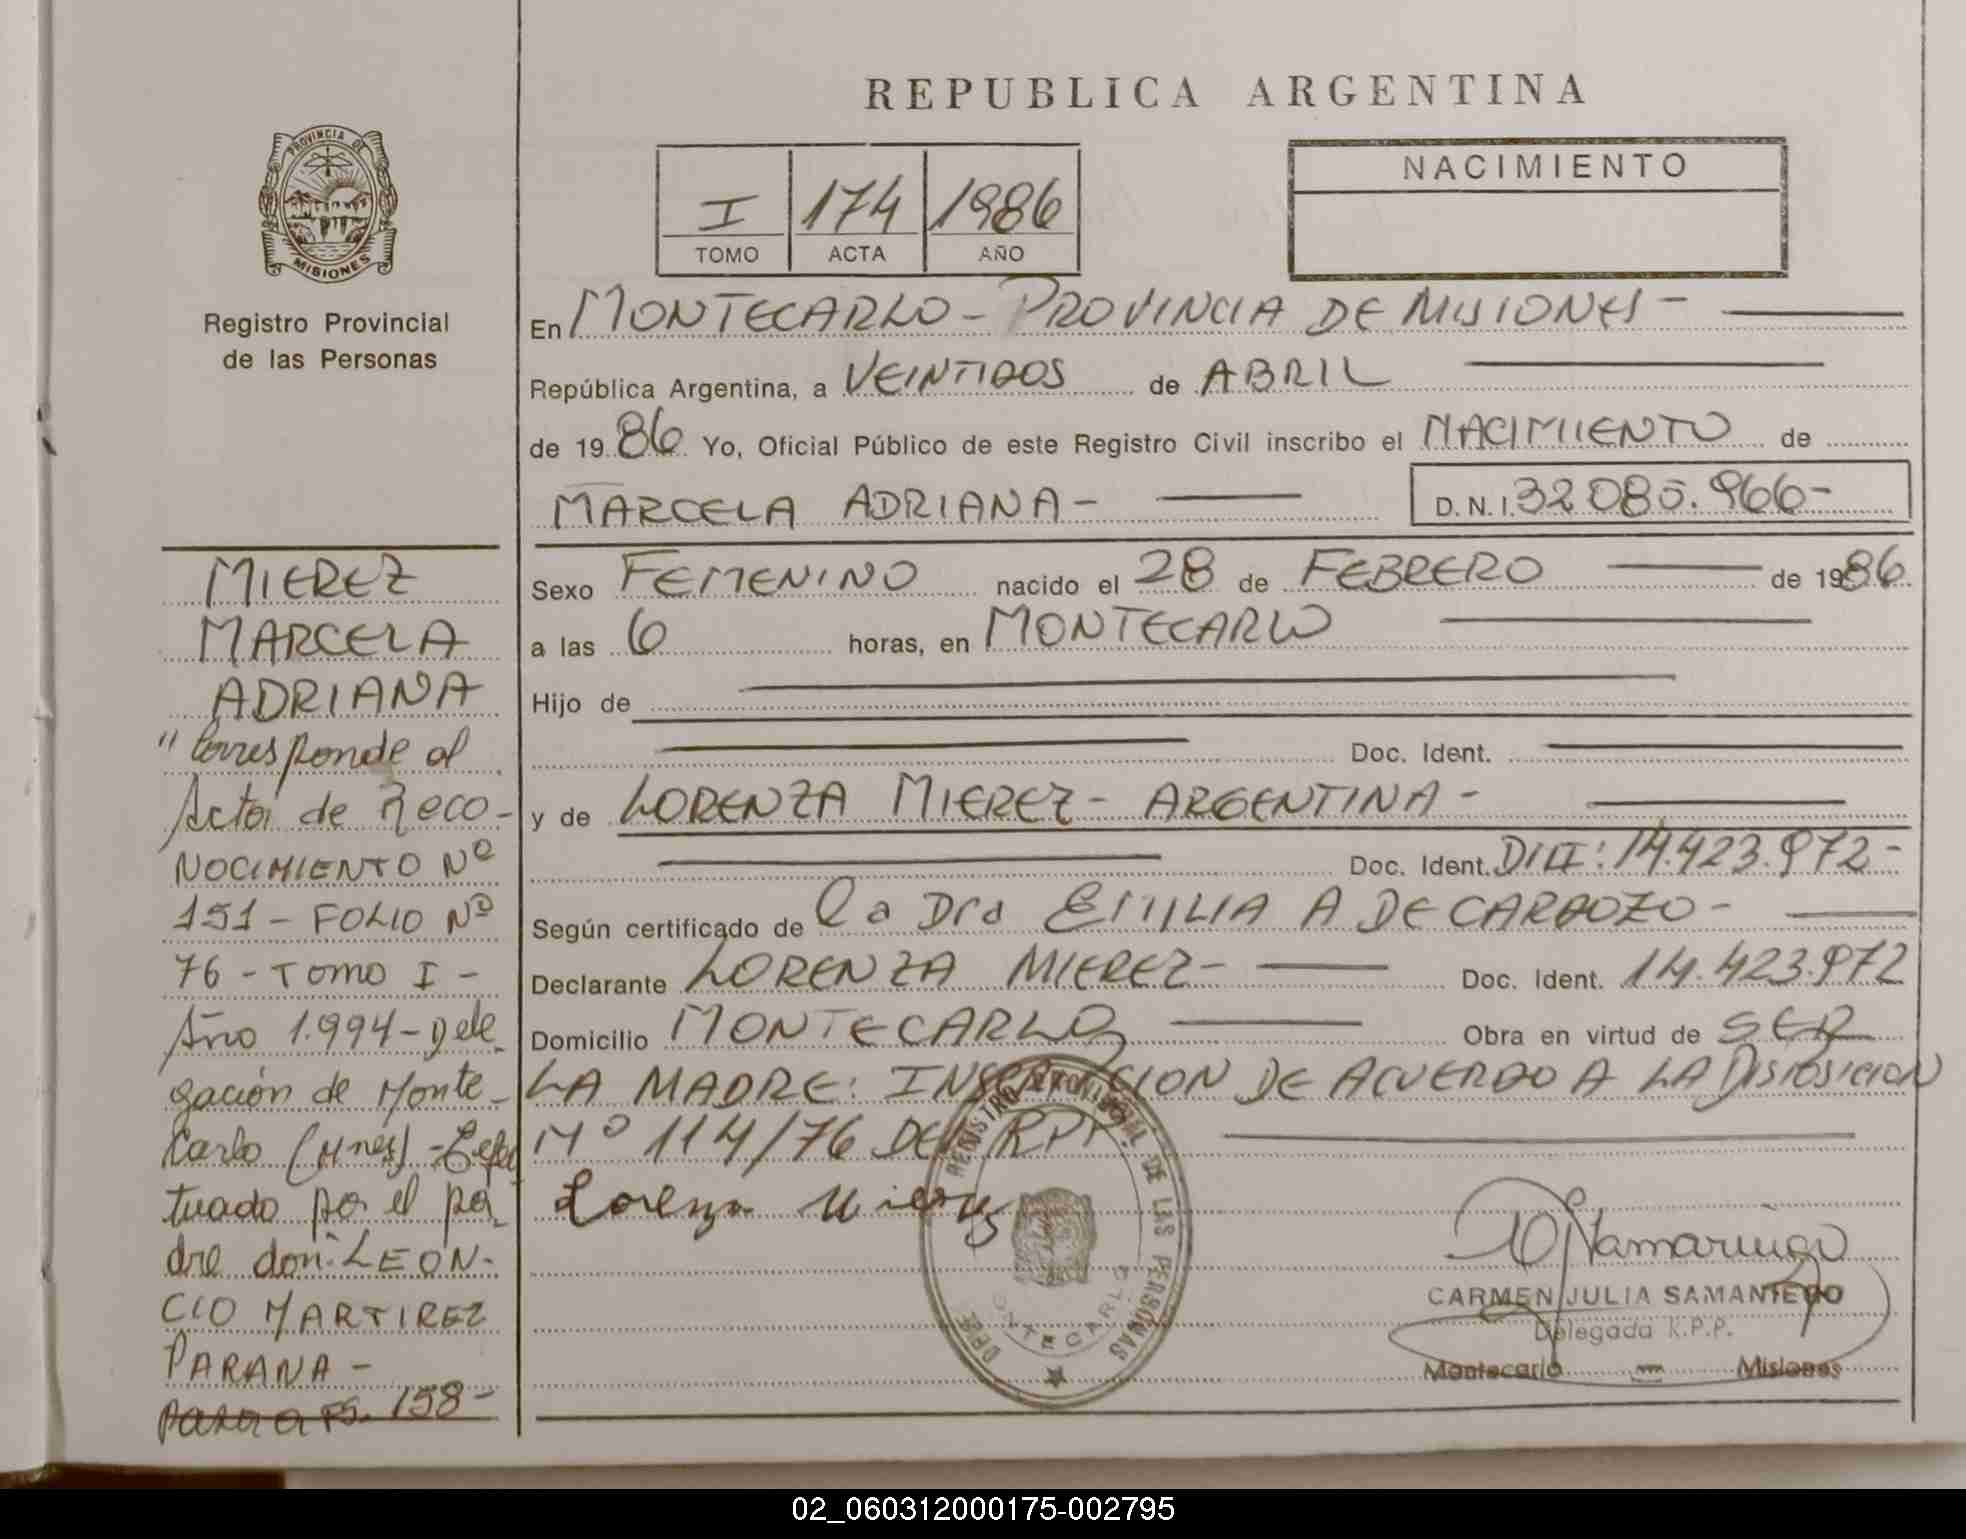 REPUBLICA ARGENTINA
PROVINCIA DE
MISIONES
Registro Provincial
de las Personas
I 174 1986
TOMO ACTA AÑO
NACIMIENTO
En MONTECARLO - PROVINCIA DE MISIONES -
República Argentina, a VEINTIDOS de ABRIL
de 1986 Yo, Oficial Público de este Registro Civil inscribo el NACIMIENTO de
MARCELA ADRIANA - D.N.I. 32.085.966-
Sexo FEMENINO nacido el 28 de FEBRERO de 1986
a las 6 horas, en MONTECARLO
Hijo de
Doc. Ident.
y de LORENZA MIEREZ - ARGENTINA -
Doc. Ident. DNI: 14.423.972-
Según certificado de la Dra EMILIA A DE CARDOZO -
Declarante LORENZA MIEREZ - Doc. Ident. 14.423.972
Domicilio MONTECARLO Obra en virtud de SER
LA MADRE: INSCRIPCION DE ACUERDO A LA DISPOSICION
Nº 114/76 DEL RPP.
Lorenza Mierez
REGISTRO PROVINCIAL DE LAS PERSONAS
MONTECARLO
CARMEN JULIA SAMANIEGO
Delegada R.P.P.
Montecarlo - Misiones
MIEREZ
MARCELA
ADRIANA
"Corresponde al
Acta de Reco-
NOCIMIENTO Nº
151 - FOLIO Nº
76 - TOMO I -
Año 1.994 - Dele
gación de Monte-
Carlo (Mnes) - Efec
tuado por el pa-
dre don: LEON-
CIO MARTIREZ
PARANA -
Pasa a Fs. 158-
02_060312000175-002795